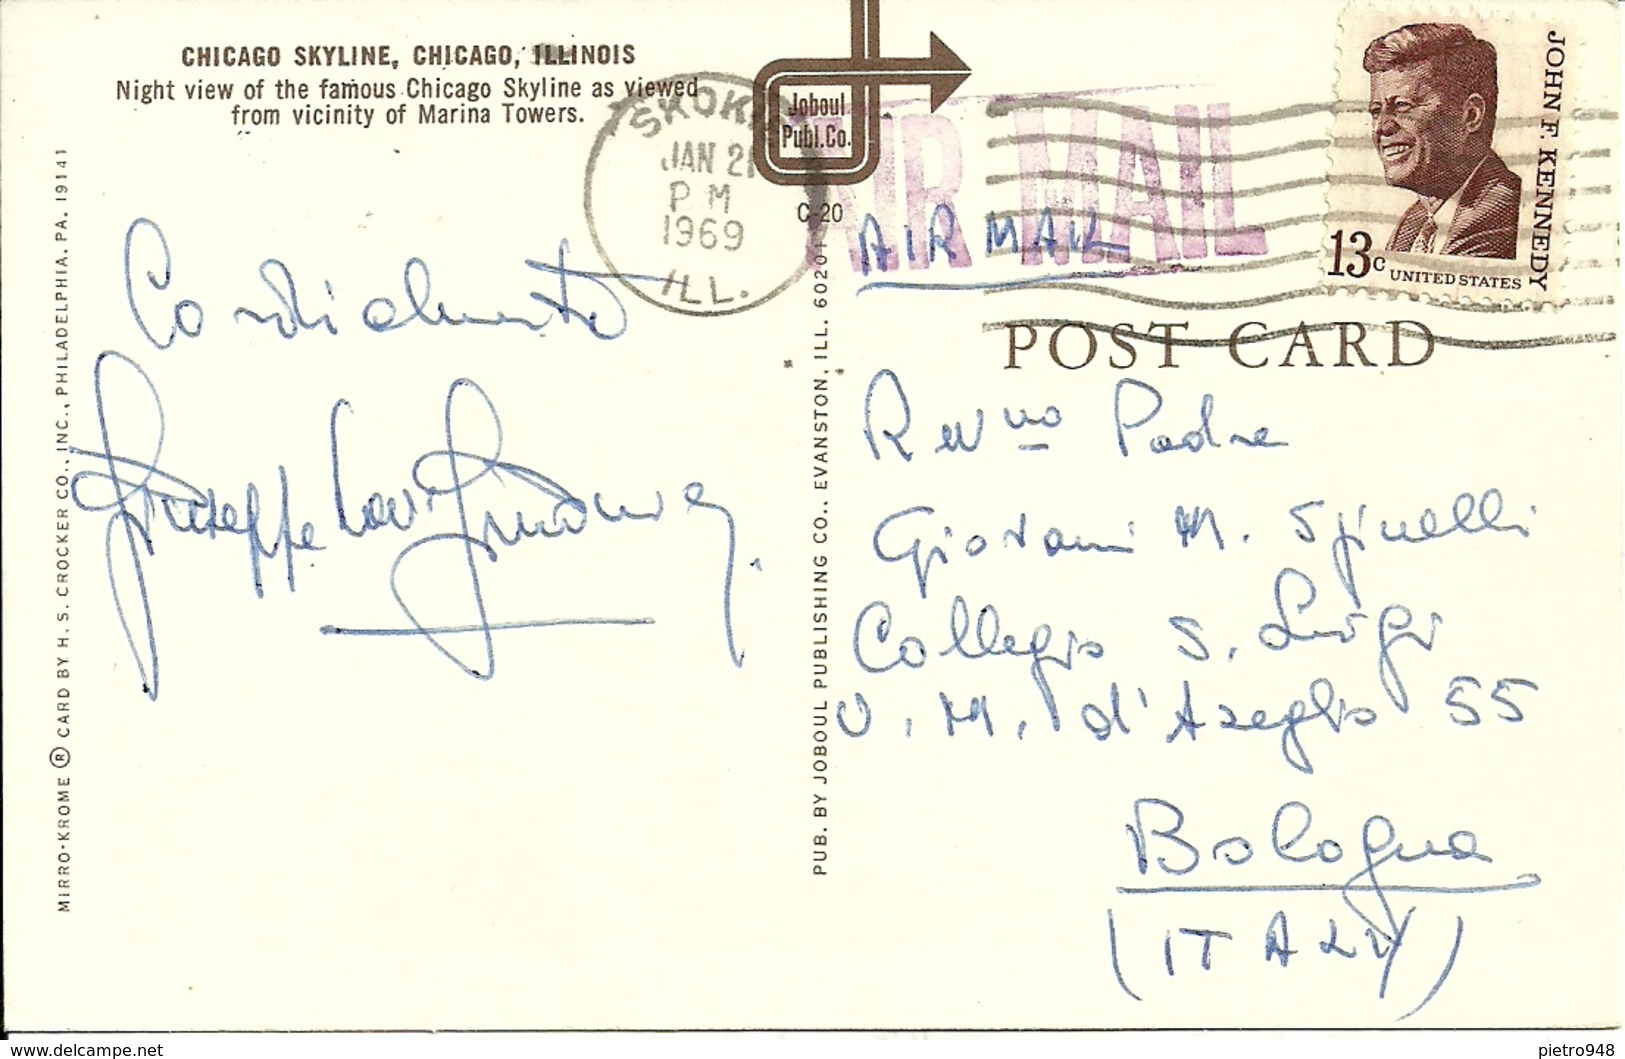 CHICAGO SKYLINE, CHICAGO, ILLINOIS
Night view of the famous Chicago Skyline as viewed
from vicinity of Marina Towers.
SKOKIE
JAN 21
PM
1969
ILL.
Joboul
Publ.Co.
C-20
AIR MAIL
AIR MAIL
JOHN F. KENNEDY
13c UNITED STATES
POST CARD
Cordialmente
Giuseppe
MIRRO-KROME ® CARD BY H. S. CROCKER CO., INC., PHILADELPHIA, PA. 19141
PUB. BY JOBOUL PUBLISHING CO., EVANSTON, ILL. 60201
Rev.mo Padre
Giovanni M. Spinelli
Collegio S. Luigi
V. M. d'Azeglio 55
Bologna
(ITALY)
pietro948
www.delcampe.net